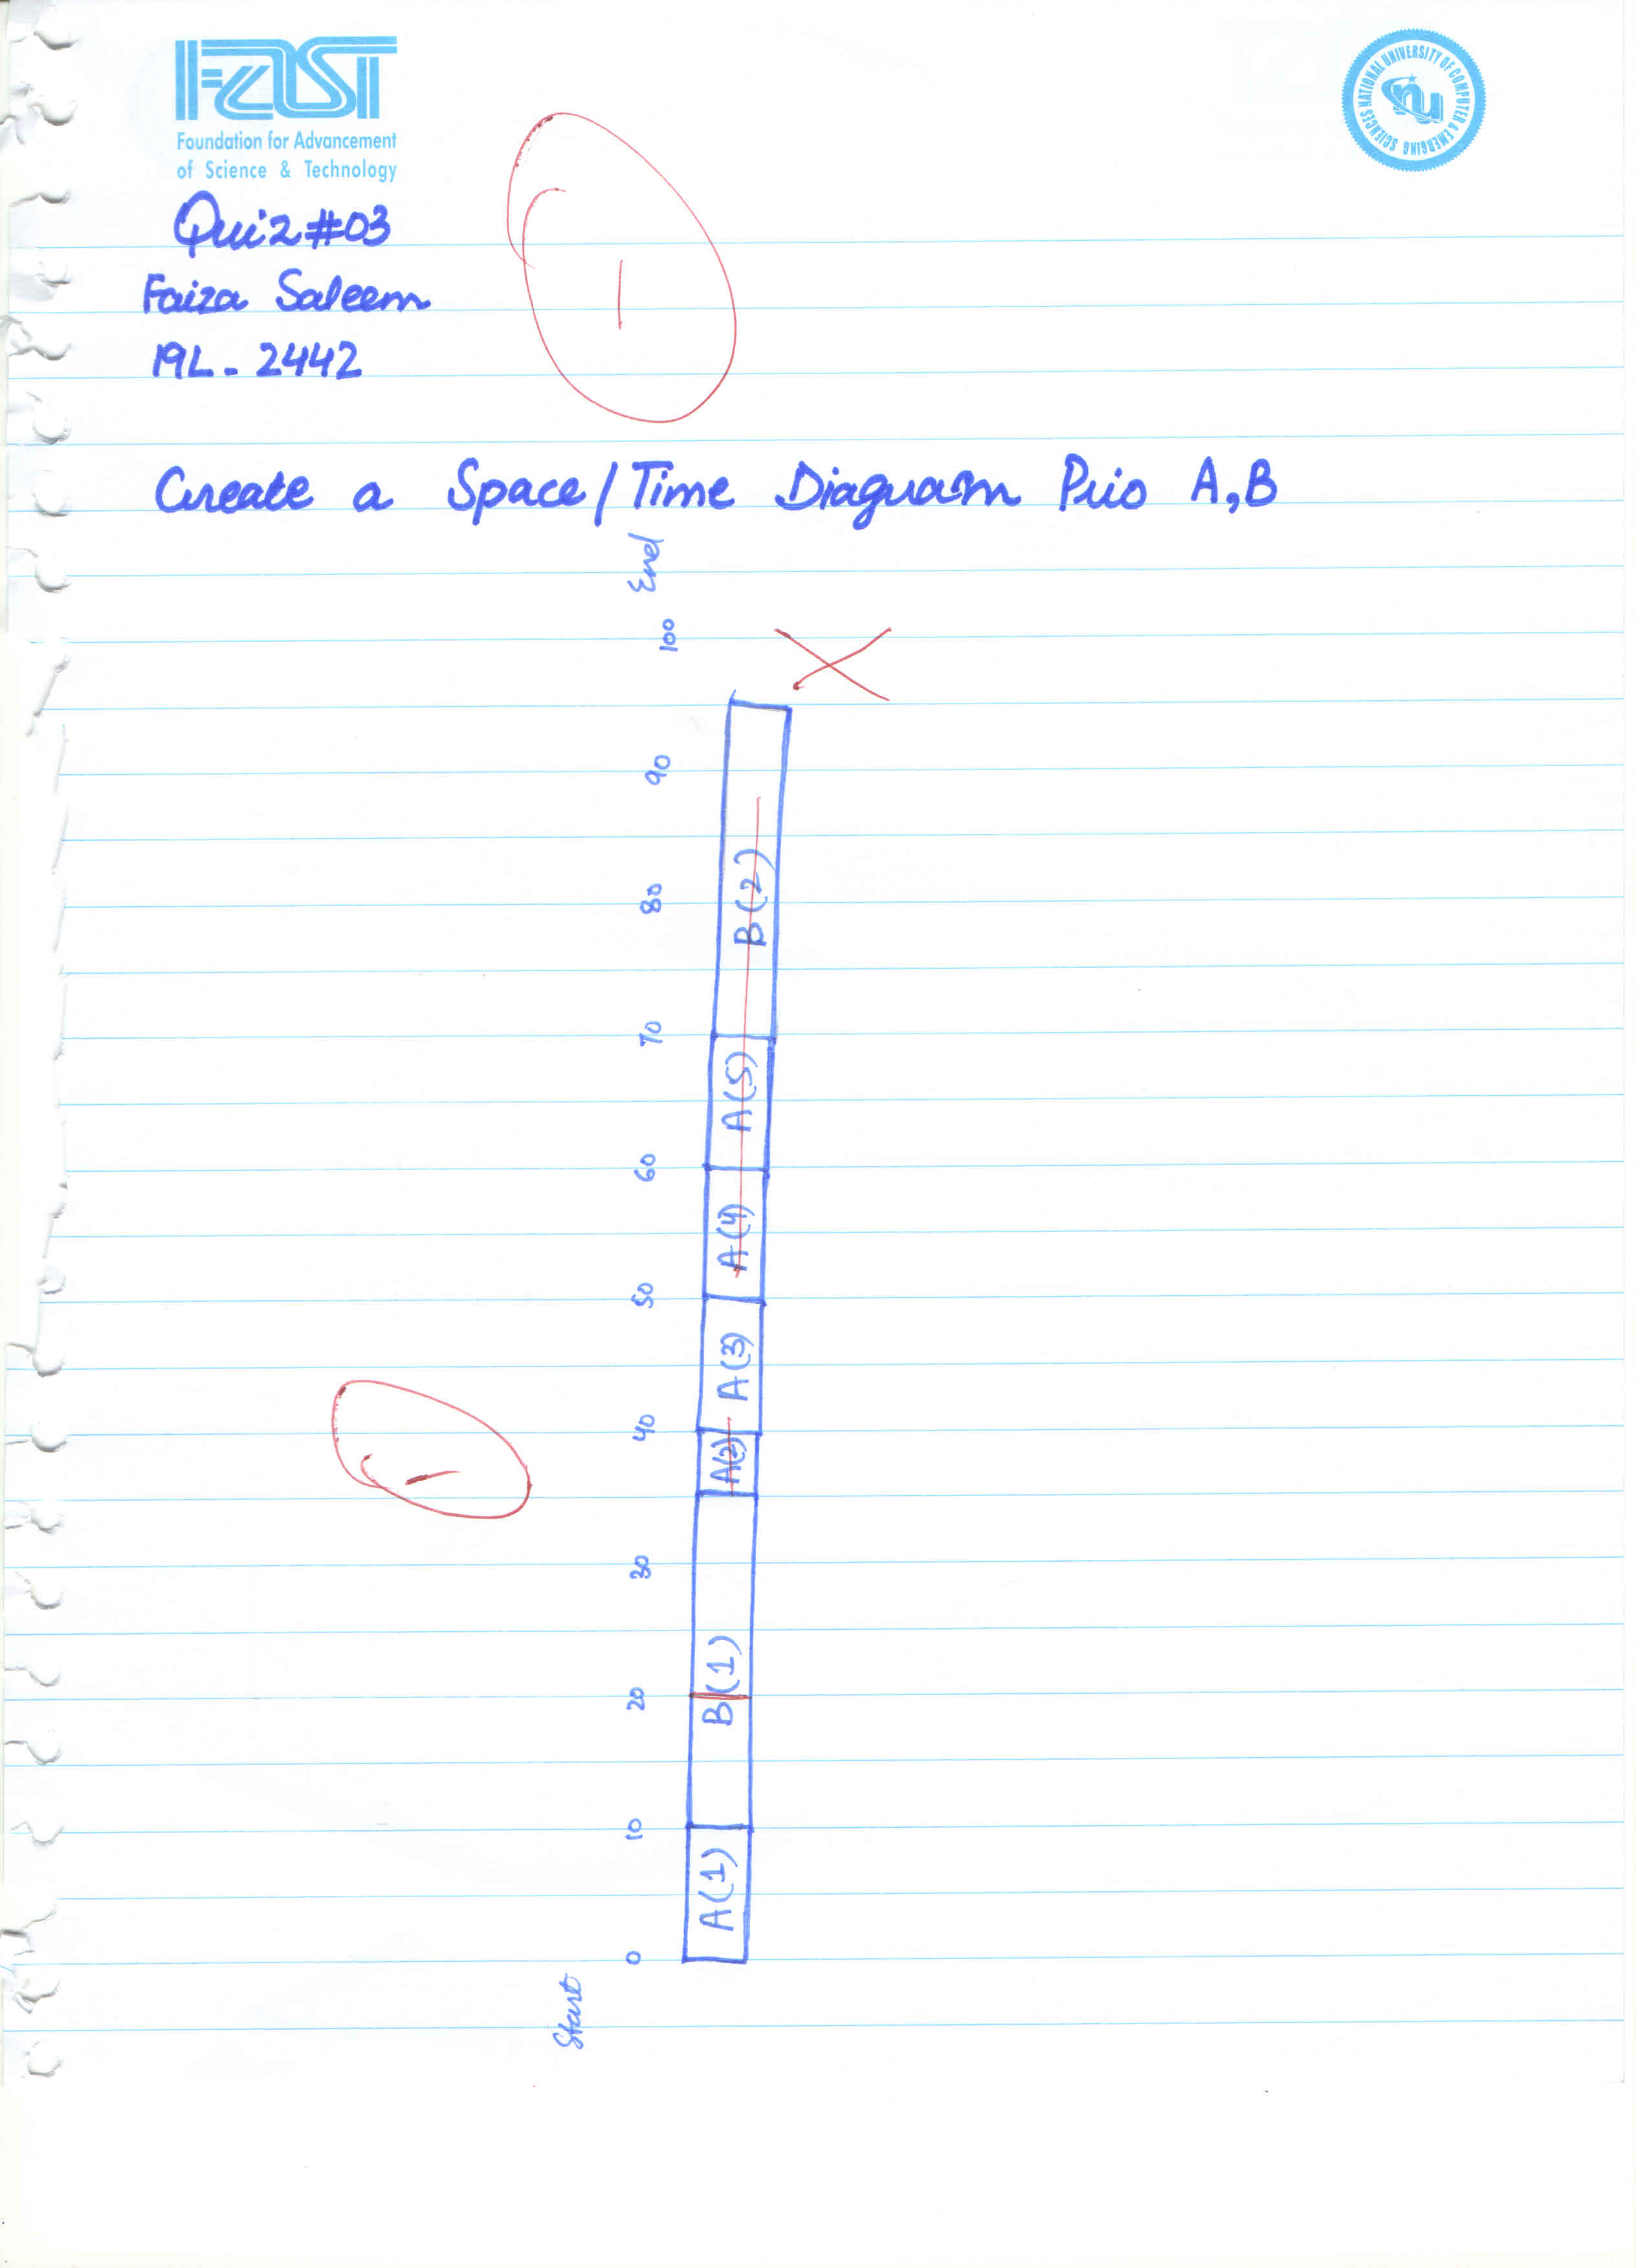 FAST
Foundation for Advancement
of Science & Technology
NATIONAL UNIVERSITY OF COMPUTER & EMERGING SCIENCES
nu
Quiz #03
Faiza Saleem
19L - 2442
1
Create a Space/Time Diagram Prio A,B
End
100
90
80
70
60
50
40
30
20
10
0
Start
B(2)
A(5)
A(4)
A(3)
A(2)
B(1)
A(1)